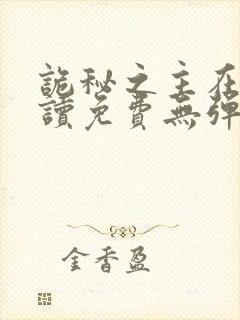 詭秘之主在
讀免費無彈
金香盈